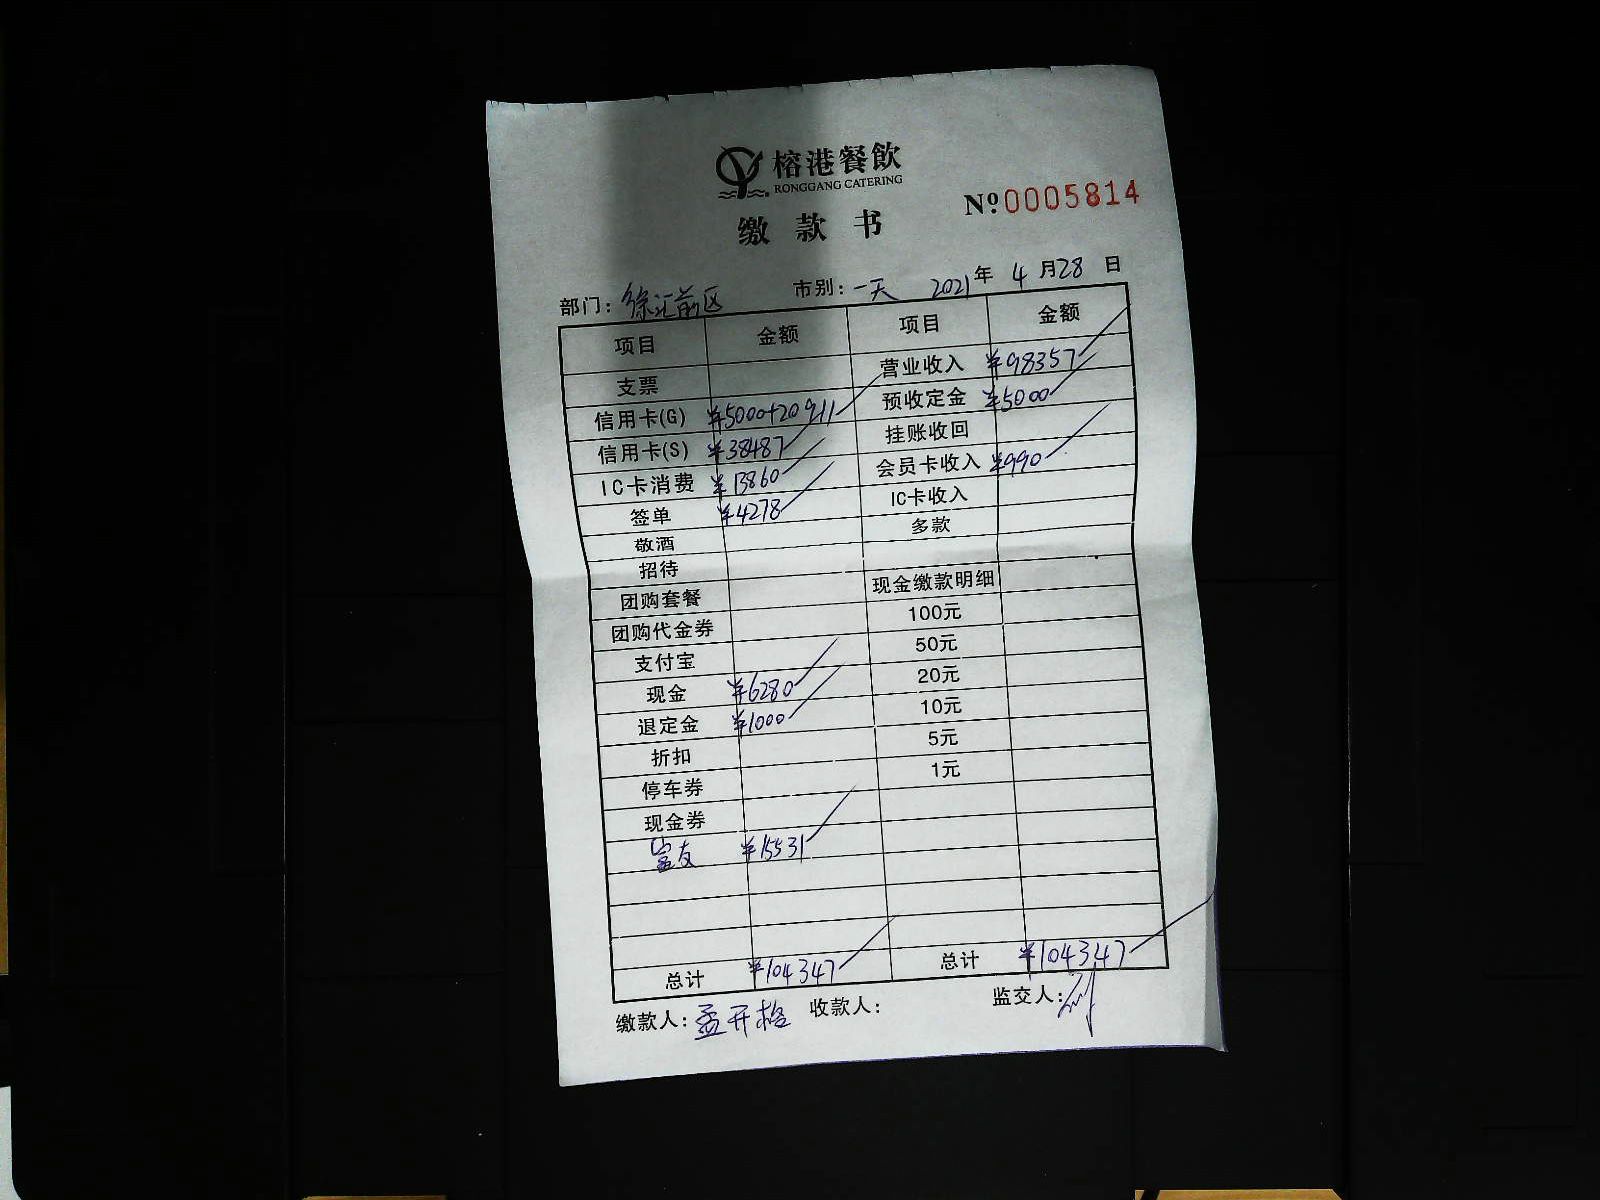 榕港餐飲
RONGGANG CATERING
缴款书
Nº:0005814
部门:徐汇前区 市别:一天 2021年4月28日
项目 金额 项目 金额
支票 营业收入 ¥98357
信用卡(G) ¥5000+20911 预收定金 ¥5000
信用卡(S) ¥38487 挂账收回
IC卡消费 ¥13860 会员卡收入 ¥990
签单 ¥4278 IC卡收入
敬酒 多款
招待
团购套餐 现金缴款明细
团购代金券 100元
支付宝 50元
现金 ¥6280 20元
退定金 ¥1000 10元
折扣 5元
停车券 1元
现金券
¥15531
总计 ¥104347 总计 ¥104347
缴款人:孟开格 收款人: 监交人: